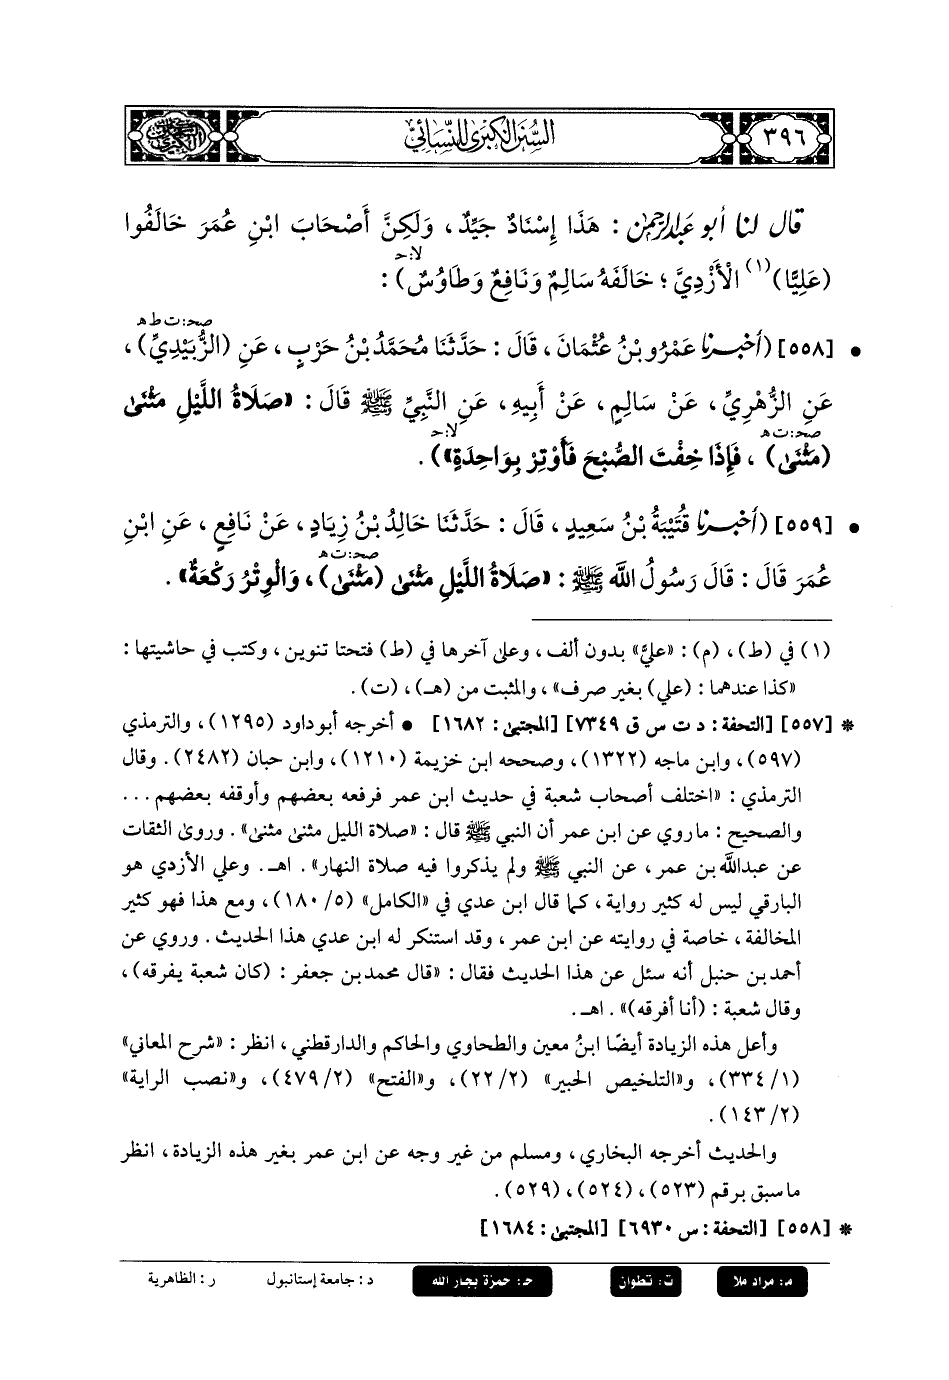 ٣٩٦
السُّنَنُ الْكِبْرَىٰ لِلنَّسَائِيِّ
قال لنا أبو عبد الرحمٰن : هَذَا إِسْنَادٌ جَيِّدٌ ، وَلَكِنَّ أَصْحَابَ ابْنِ عُمَرَ خَالَفُوا
(عَلِيًّا)(١) الْأَزْدِيَّ ؛ خَالَفَهُ سَالِمٌ وَنَافِعٌ وَطَاوُسٌ) :
لا: حـ
صحـ: ت ط هـ
• [٥٥٨] (أخبرنا عَمْرُو بْنُ عُثْمَانَ ، قَالَ : حَدَّثَنَا مُحَمَّدُ بْنُ حَرْبٍ ، عَنِ (الزُّبَيْدِيِّ) ،
عَنِ الزُّهْرِيِّ ، عَنْ سَالِمٍ ، عَنْ أَبِيهِ ، عَنِ النَّبِيِّ ﷺ قَالَ : «صَلَاةُ اللَّيْلِ مَثْنَىٰ
صحـ: ت هـ
(مَثْنَىٰ) ، فَإِذَا خِفْتَ الصُّبْحَ فَأَوْتِرْ بِوَاحِدَةٍ») .
لا: حـ
• [٥٥٩] (أخبرنا قُتَيْبَةُ بْنُ سَعِيدٍ ، قَالَ : حَدَّثَنَا خَالِدُ بْنُ زِيَادٍ ، عَنْ نَافِعٍ ، عَنِ ابْنِ
صحـ: ت هـ
عُمَرَ قَالَ : قَالَ رَسُولُ اللَّه ﷺ : «صَلَاةُ اللَّيْلِ مَثْنَىٰ (مَثْنَىٰ) ، وَالْوِتْرُ رَكْعَةٌ» .
(١) في (ط) ، (م) : «عليّ» بدون ألف ، وعلى آخرها في (ط) فتحتا تنوين ، وكتب في حاشيتها :
«كذا عندهما : (علي) بغير صرف» ، والمثبت من (هـ) ، (ت) .
* [٥٥٧] [التحفة : د ت س ق ٧٣٤٩] [المجتبىٰ : ١٦٨٢] • أخرجه أبو داود (١٢٩٥) ، والترمذي
(٥٩٧) ، وابن ماجه (١٣٢٢) ، وصححه ابن خزيمة (١٢١٠) ، وابن حبان (٢٤٨٢) . وقال
الترمذي : «اختلف أصحاب شعبة في حديث ابن عمر فرفعه بعضهم وأوقفه بعضهم ...
والصحيح : ما روي عن ابن عمر أن النبي ﷺ قال : «صلاة الليل مثنى مثنى» . وروىٰ الثقات
عن عبداللَّه بن عمر ، عن النبي ﷺ ولم يذكروا فيه صلاة النهار» . اهـ. وعلي الأزدي هو
البارقي ليس له كثير رواية ، كما قال ابن عدي في «الكامل» (٥/ ١٨٠) ، ومع هذا فهو كثير
المخالفة ، خاصة في روايته عن ابن عمر ، وقد استنكر له ابن عدي هذا الحديث . وروي عن
أحمد بن حنبل أنه سئل عن هذا الحديث فقال : «قال محمد بن جعفر : (كان شعبة يفرقه) ،
وقال شعبة : (أنا أفرقه)» . اهـ.
وأعل هذه الزيادة أيضًا ابنُ معين والطحاوي والحاكم والدارقطني ، انظر : «شرح المعاني»
(١/ ٣٣٤) ، و«التلخيص الحبير» (٢/ ٢٢) ، و«الفتح» (٢/ ٤٧٩) ، و«نصب الراية»
(٢/ ١٤٣) .
والحديث أخرجه البخاري ، ومسلم من غير وجه عن ابن عمر بغير هذه الزيادة ، انظر
ما سبق برقم (٥٢٣) ، (٥٢٤) ، (٥٢٩) .
* [٥٥٨] [التحفة : س ٦٩٣٠] [المجتبىٰ : ١٦٨٤]
م: مراد ملا ت: تطوان حـ: حمزة بجار الله د: جامعة إستانبول ر: الظاهرية